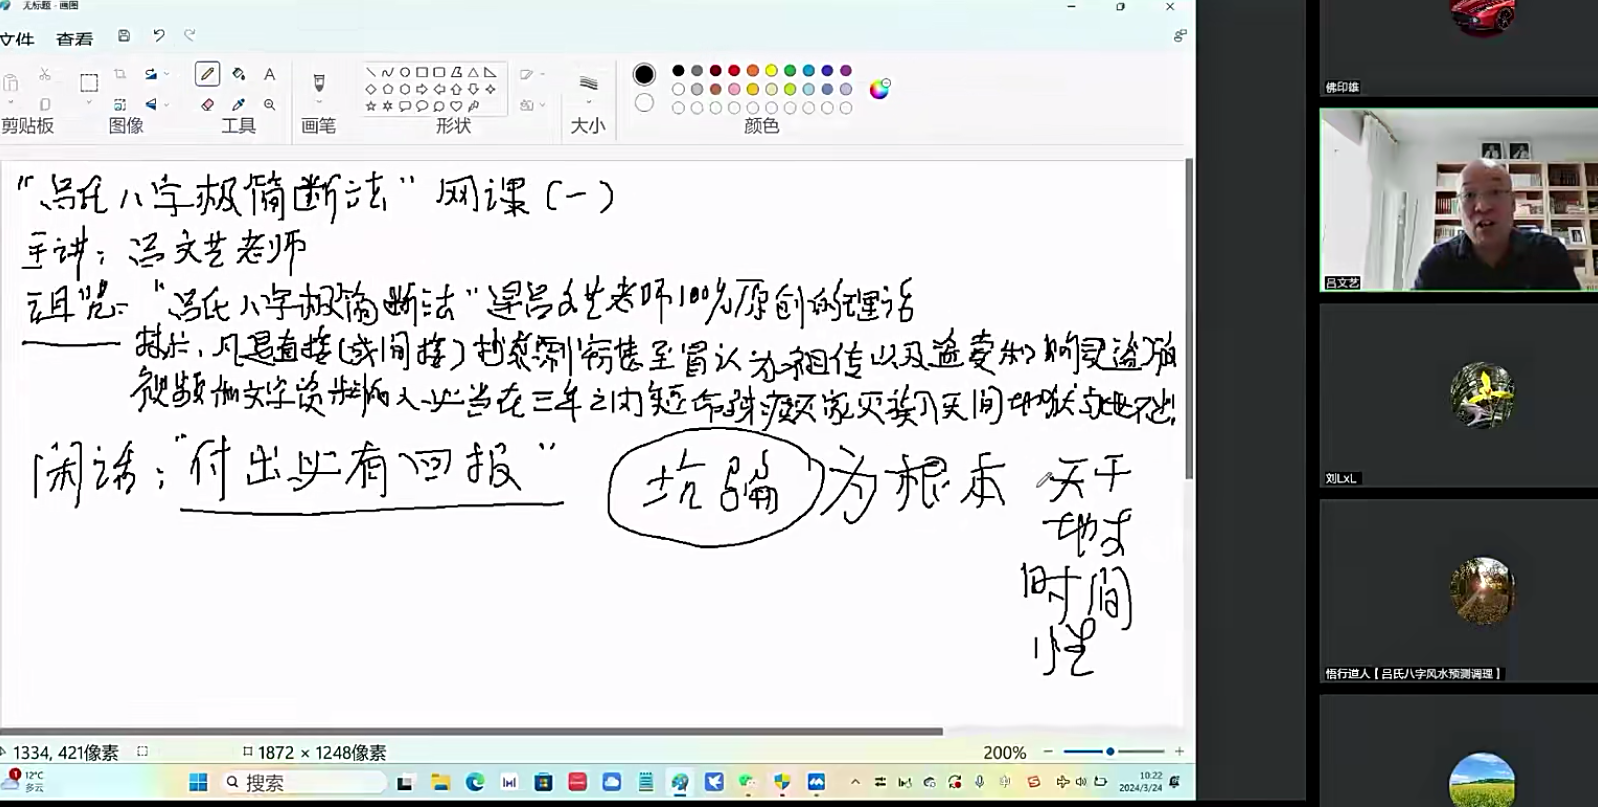 无标题 - 画图
文件 查看
剪贴板 图像 工具 画笔 形状 大小 颜色
A
"吕氏八字极简断法" 网课(一)
主讲:吕文艺老师
诅咒: "吕氏八字极简断法"是吕文艺老师100%原创的理法
技术,凡是直接(或间接)抄袭剽窃甚至冒认为祖传以及盗卖和
视频和文字资料的人必当在三年之内短命残疾灭家灭族入无间地狱永世不出!
闲话:"付出必有回报" 坑骗为根本
天干
地支
时间
性
佛印雄
吕文艺
刘LxL
悟行道人【吕氏八字风水预测调理】
1334, 421像素 1872 × 1248像素 200%
12°C
多云
搜索
10:22
2024/3/24